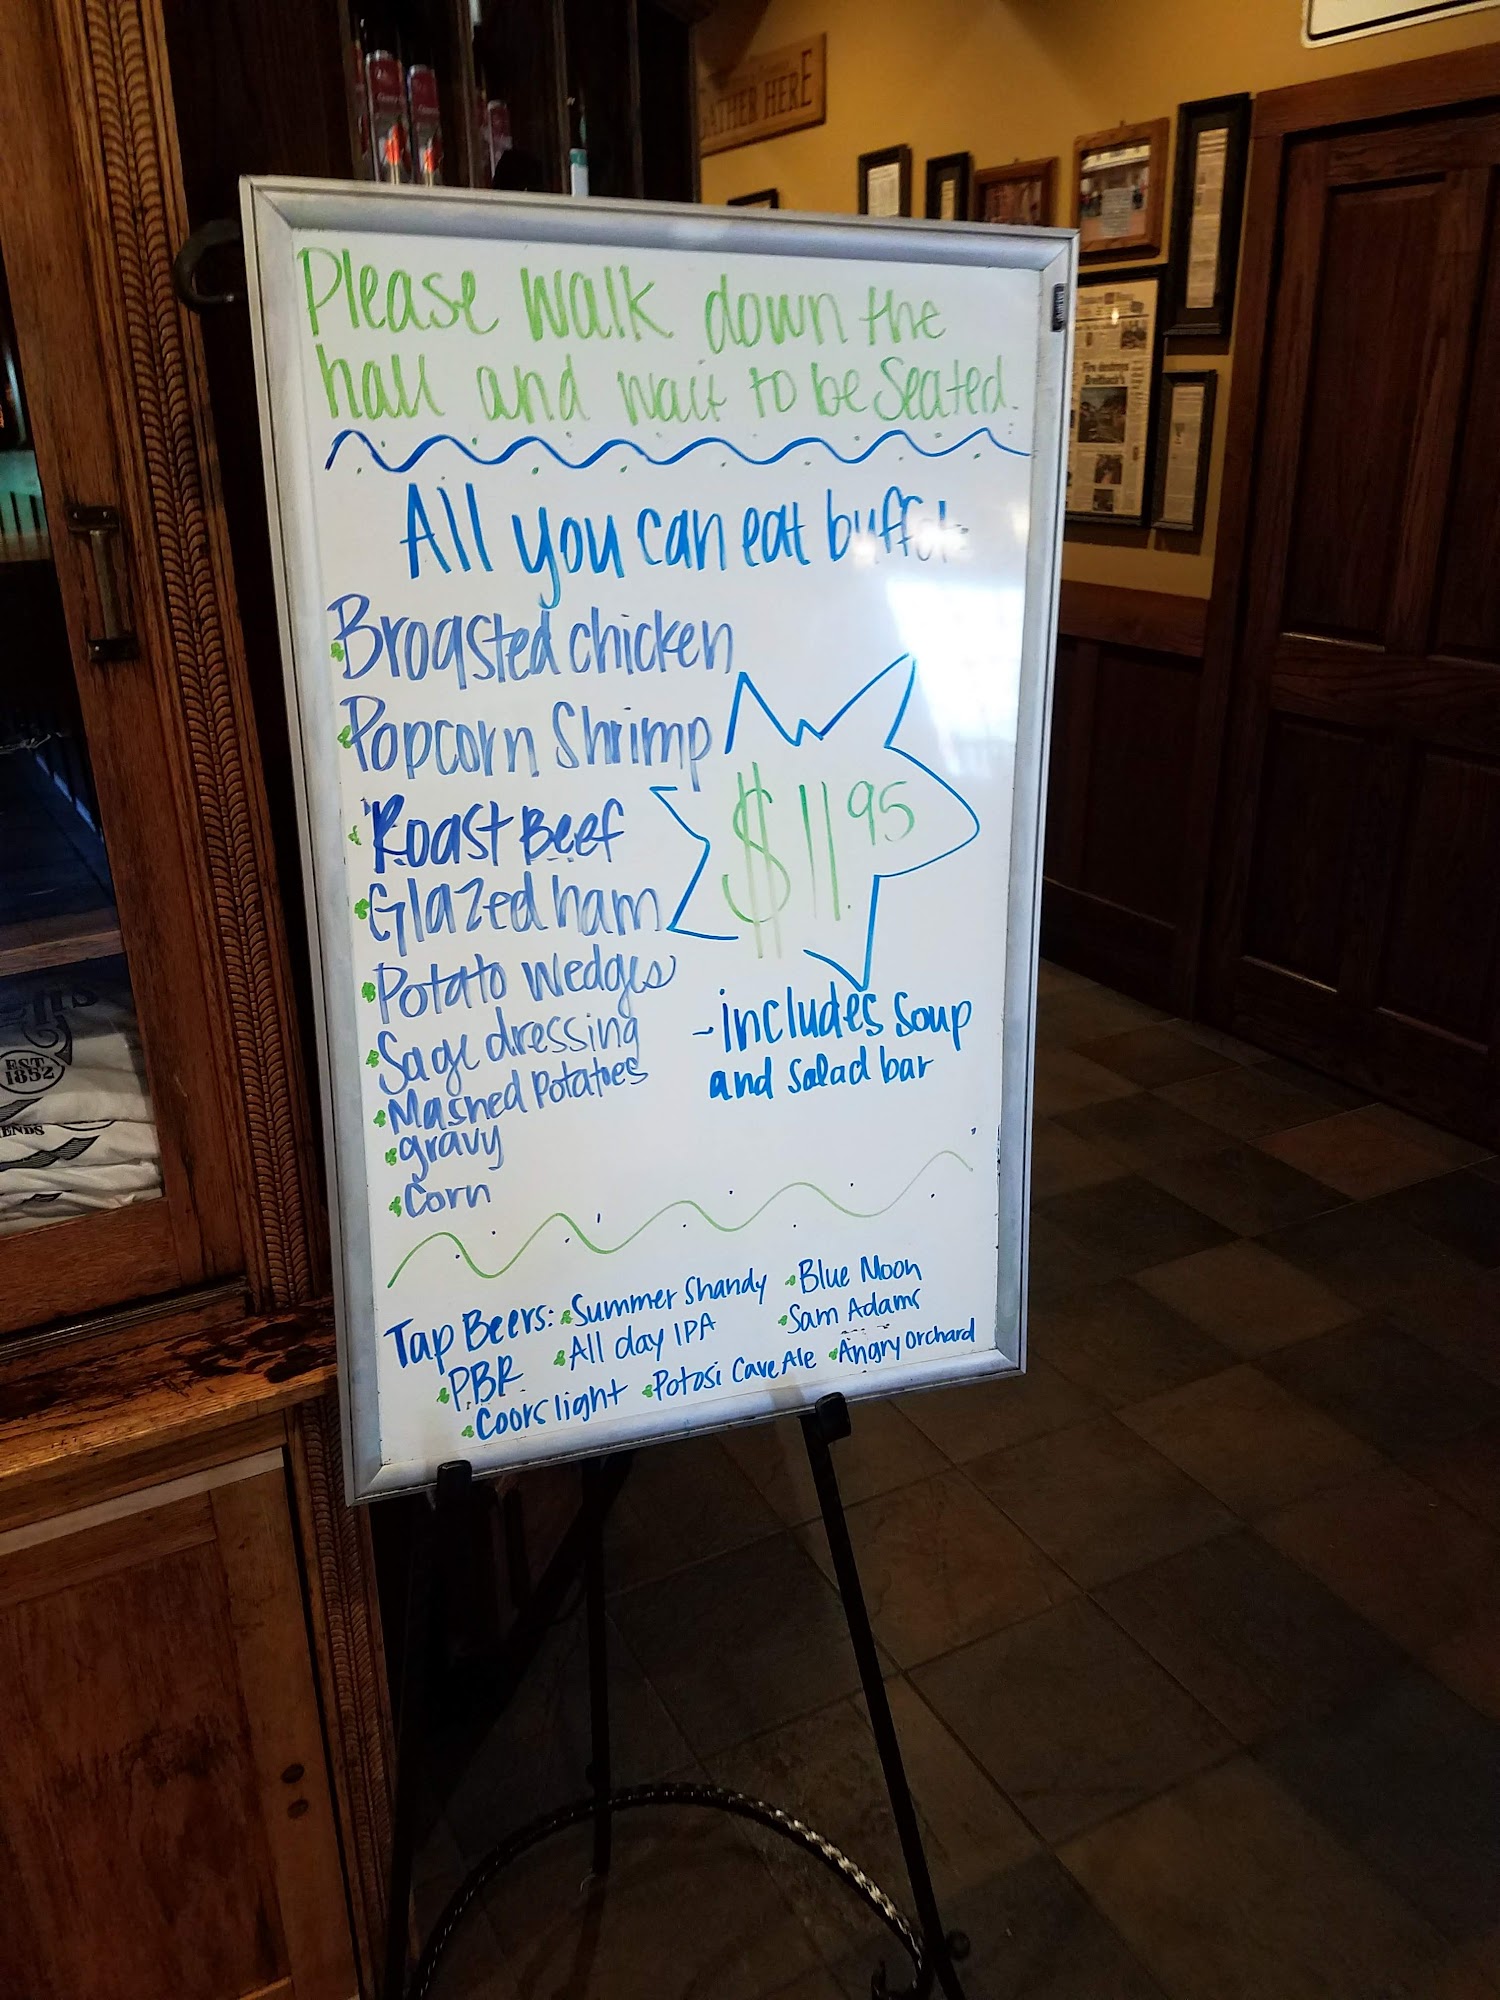 GATHER HERE
Please walk down the
hall and wait to be Seated.
All you can eat buffet
Broasted chicken
Popcorn Shrimp
Roast Beef
Glazed ham
Potato wedges
Sage dressing
Mashed Potatoes
gravy
Corn
$11 95
-includes soup
and salad bar
Tap Beers:
Summer Shandy
Blue Moon
PBR
All day IPA
Sam Adams
Coors light
Potosi Cave Ale
Angry Orchard
EST.
1852
Fire destroys